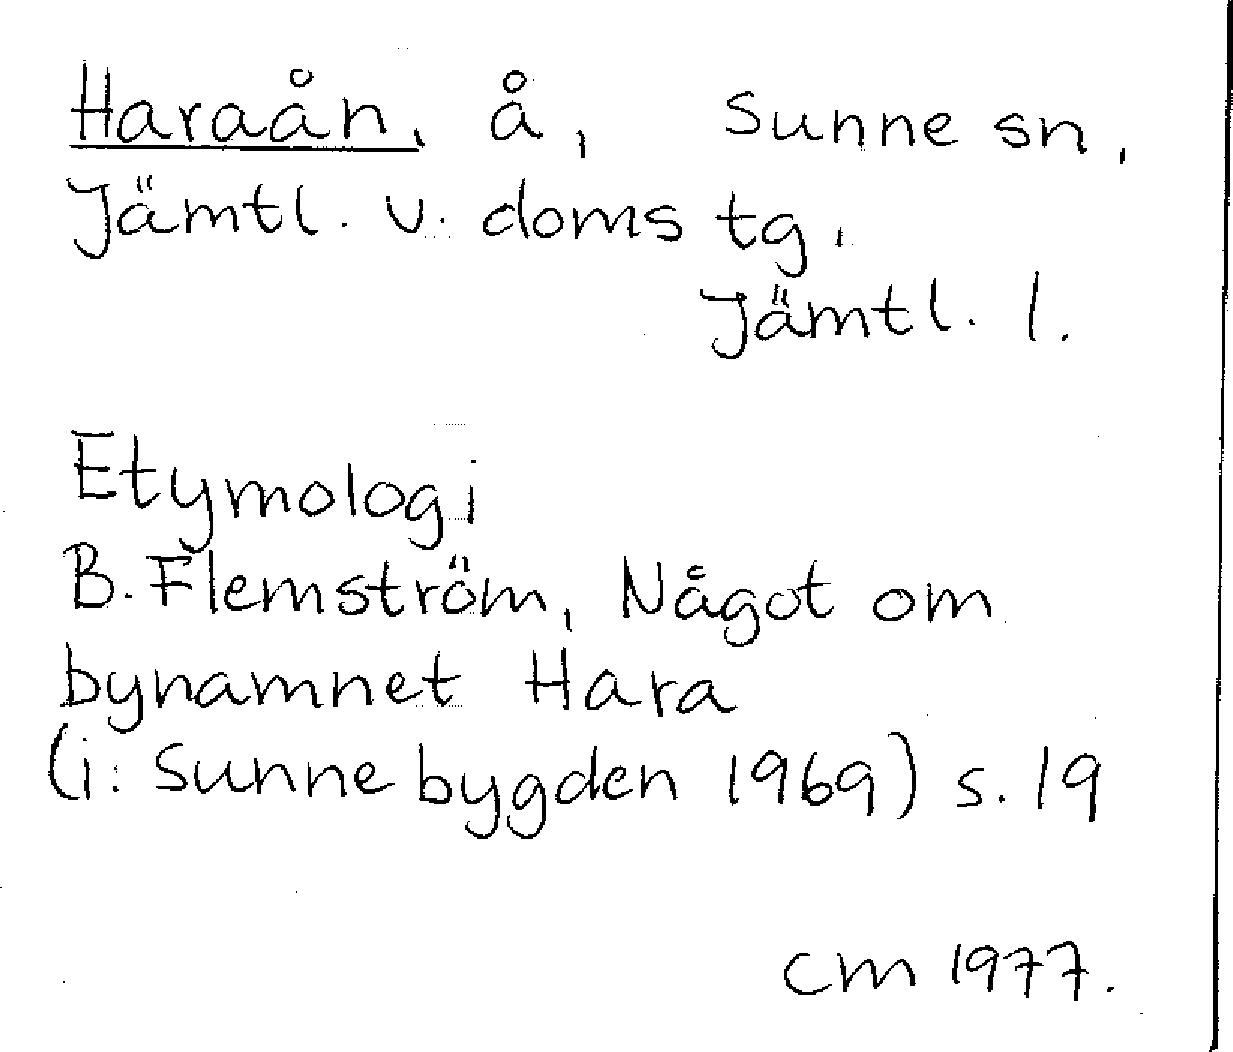 Haraån, å, Sunne sn,
Jämtl. v. doms tg,
Jämtl. l.
Etymologi
B. Flemström, Något om
bynamnet Hara
(i: Sunnebygden 1969) s. 19
CM 1977.